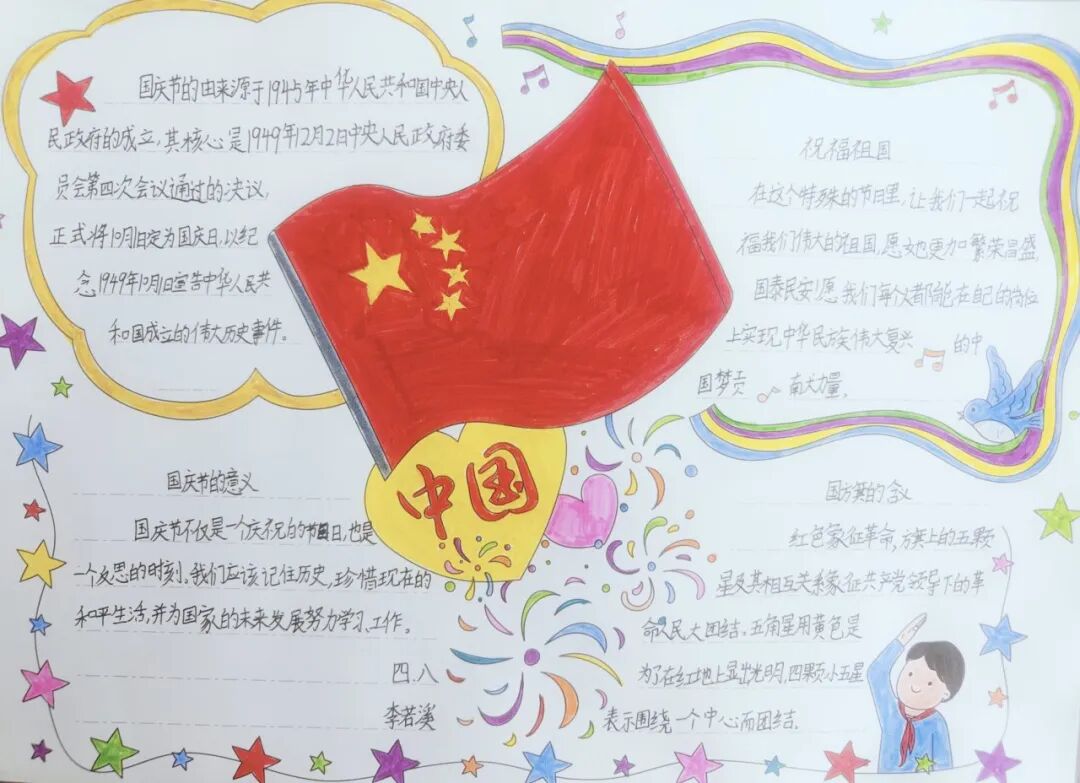 国庆节的由来源于1945年中华人民共和国中央人
民政府的成立,其核心是1949年12月2日中央人民政府委
员会第四次会议通过的决议,
正式将10月1日定为国庆日,以纪
念1949年10月1日宣告中华人民共
和国成立的伟大历史事件。
祝福祖国
在这个特殊的节日里,让我们一起祝
福我们伟大的祖国,愿她更加繁荣昌盛,
国泰民安!愿我们每个人都能在自己的岗位
上实现中华民族伟大复兴的中
国梦贡献力量,
中国
国庆节的意义
国庆节不仅是一个庆祝的节日,也是
一个反思的时刻。我们应该记住历史,珍惜现在的
和平生活,并为国家的未来发展努力学习、工作。
四.八
李若溪
国旗的含义
红色象征革命,旗上的五颗
星及其相互关系象征共产党领导下的革
命人民大团结。五角星用黄色是
为了在红地上显出光明,四颗小五星
表示围绕一个中心而团结.